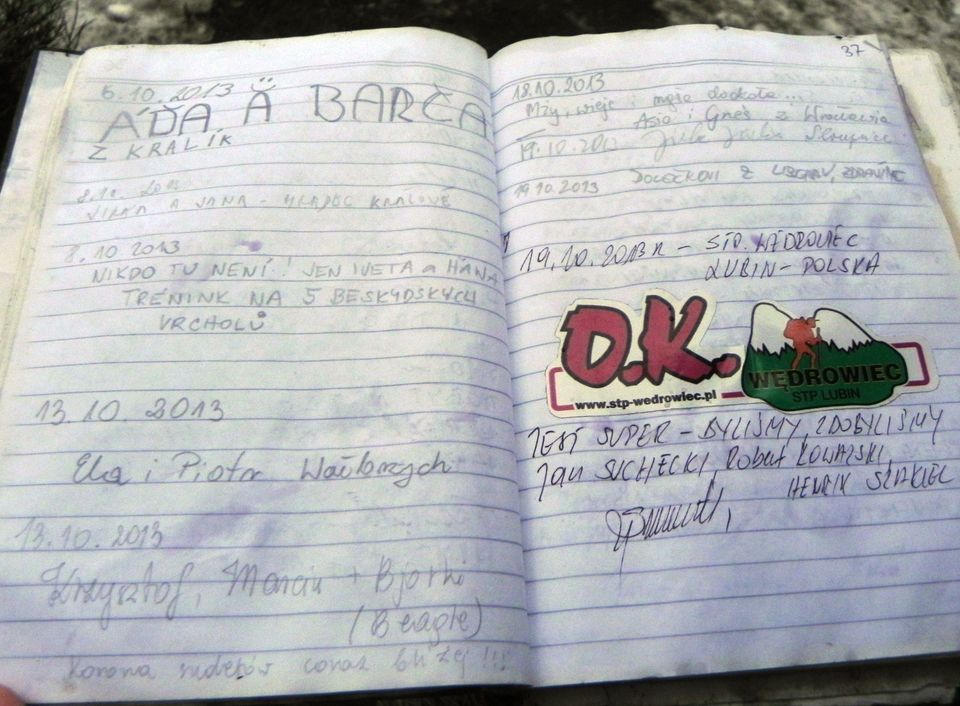 6.10.2013
AĎA Ä BARČA
Z KRALÍK
8.10. 2013
JIRKA A JANA - HRADEC KRÁLOVÉ
8.10 2013
NIKDO TU NENÍ! JEN IVETA a HANA
TRÉNINK NA 5 BESKYDSKÝCH
VRCHOLŮ
13.10.2013
Ela i Piotr Wałbrzych
13.10.2013
Krzysztof, Marcin + Bjorki
(Beagle)
Korona sudetów coraz bliżej!!!
37
18.10.2013
Mży, wieje i mgła dookoła...
Asia i Gneś z Wrocławia
19.10.2013
19.10.2013 Z
19.10.2013r - STP. WĘDROWIEC
LUBIN - POLSKA
O.K.
www.stp-wedrowiec.pl
WĘDROWIEC
STP LUBIN
JEST SUPER - BYLIŚMY, ZDOBYLIŚMY
Jan SUCHECKI, Robert KOWALSKI,
HENRYK